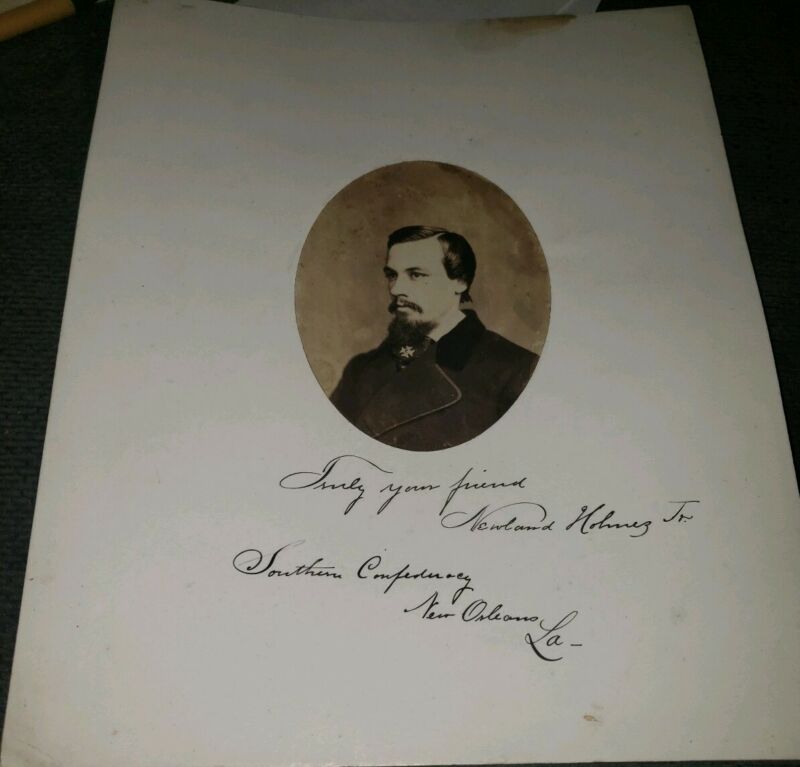 Truly your friend
Newland Holmes Jr.
Southern Confederacy
New Orleans
La –